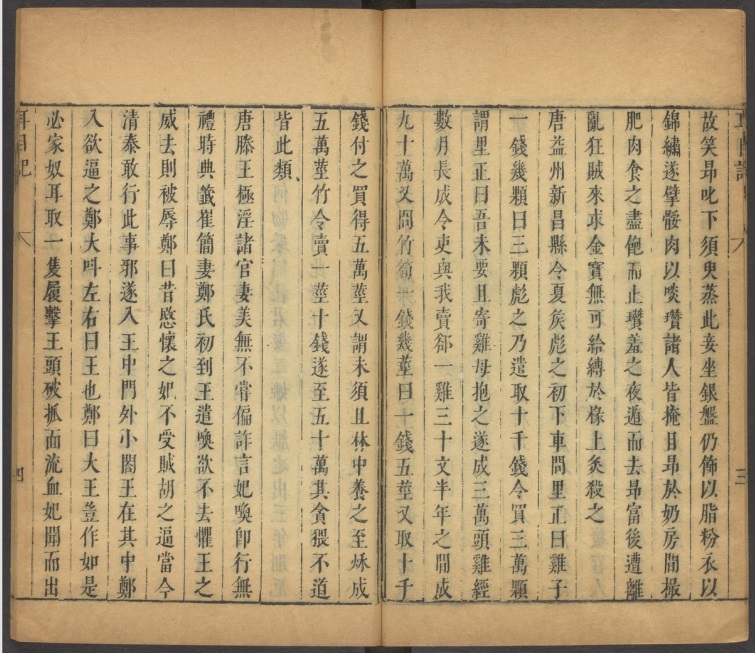 耳目記
三
故笑昻叱下須臾蒸此妾坐銀盤仍飾以脂粉衣以
錦繡遂擘骽肉以啖瓚諸人皆掩目昻於奶房間撮
肥肉食之盡飽而止瓚羞之夜遁而去昻富後遭離
亂狂賊來求金寳無可給縛於椽上炙殺之
唐益州新昌縣令夏矦彪之初下車問里正曰雞子
一錢幾顆曰三顆彪之乃遣取十千錢令買三萬顆
謂里正曰吾未要且寄雞母抱之遂成三萬頭雞經
數月長成令吏與我賣郤一雞三十文半年之間成
九十萬又問竹筍一錢幾莖曰一錢五莖又取十千
錢付之買得五萬莖又謂未須且林中養之至秌成
五萬莖竹令賣一莖十錢遂至五十萬其貪猥不道
皆此類
唐滕王極淫諸官妻美無不嘗偏詐言妃喚卽行無
禮時典籖崔簡妻鄭氏初到王遣喚欲不去懼王之
威去則被辱鄭曰昔愍懷之妃不受賊胡之逼當今
清泰敢行此事邪遂入王中門外小閤王在其中鄭
入欲逼之鄭大呌左右曰王也鄭曰大王豈作如是
必家奴耳取一隻履擊王頭破抓面流血妃聞而出
耳目記
四